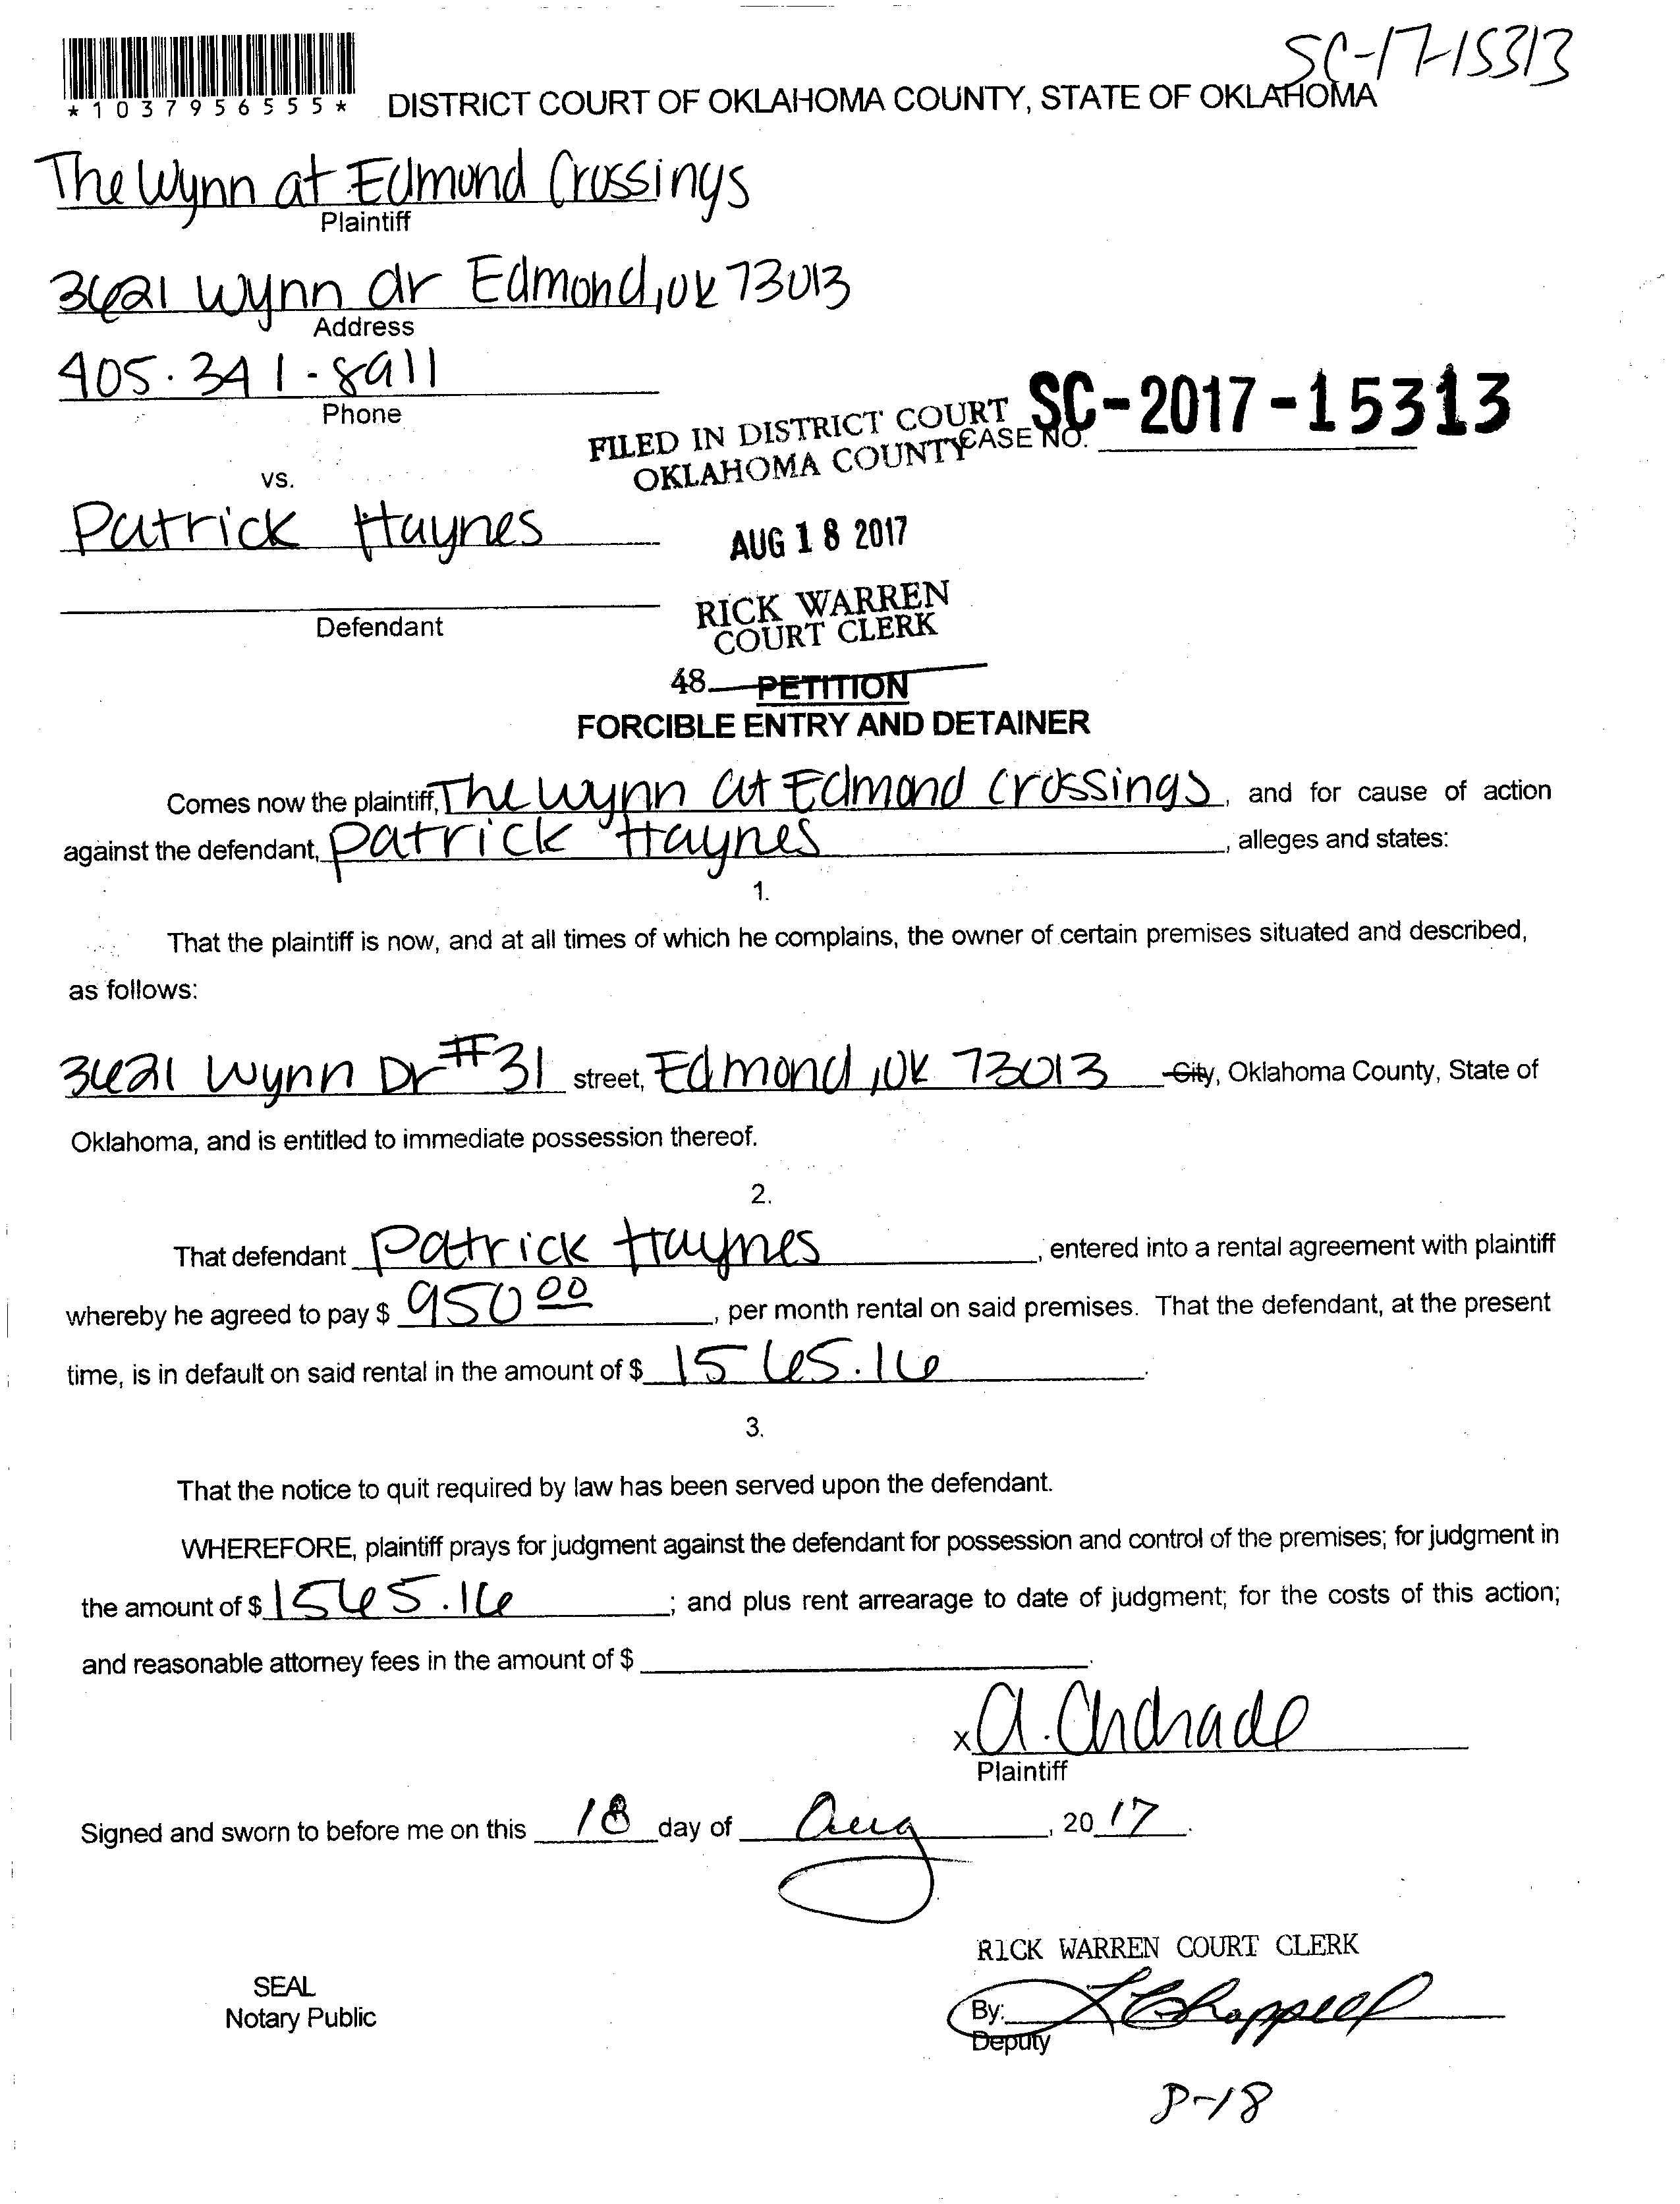 SC-17-15313
*1037956555*
DISTRICT COURT OF OKLAHOMA COUNTY, STATE OF OKLAHOMA
The Wynn at Edmond Crossings
Plaintiff
3621 Wynn dr Edmond, OK 73013
Address
405.341-8911
Phone
FILED IN DISTRICT COURT
OKLAHOMA COUNTY
CASE NO. SC-2017-15313
vs.
Patrick Haynes
AUG 18 2017
Defendant
RICK WARREN
COURT CLERK
48
PETITION
FORCIBLE ENTRY AND DETAINER
Comes now the plaintiff, The Wynn at Edmond Crossings, and for cause of action
against the defendant, Patrick Haynes, alleges and states:
1.
That the plaintiff is now, and at all times of which he complains, the owner of certain premises situated and described,
as follows:
3621 Wynn Dr #31 street, Edmond, OK 73013 City, Oklahoma County, State of
Oklahoma, and is entitled to immediate possession thereof.
2.
That defendant Patrick Haynes, entered into a rental agreement with plaintiff
whereby he agreed to pay $ 950 00, per month rental on said premises. That the defendant, at the present
time, is in default on said rental in the amount of $ 1565.16.
3.
That the notice to quit required by law has been served upon the defendant.
WHEREFORE, plaintiff prays for judgment against the defendant for possession and control of the premises; for judgment in
the amount of $ 1565.16; and plus rent arrearage to date of judgment; for the costs of this action;
and reasonable attorney fees in the amount of $ .
x A. Andrade
Plaintiff
Signed and sworn to before me on this 18 day of Aug, 2017.
RICK WARREN COURT CLERK
SEAL
Notary Public
By: Chappell
Deputy
P-18